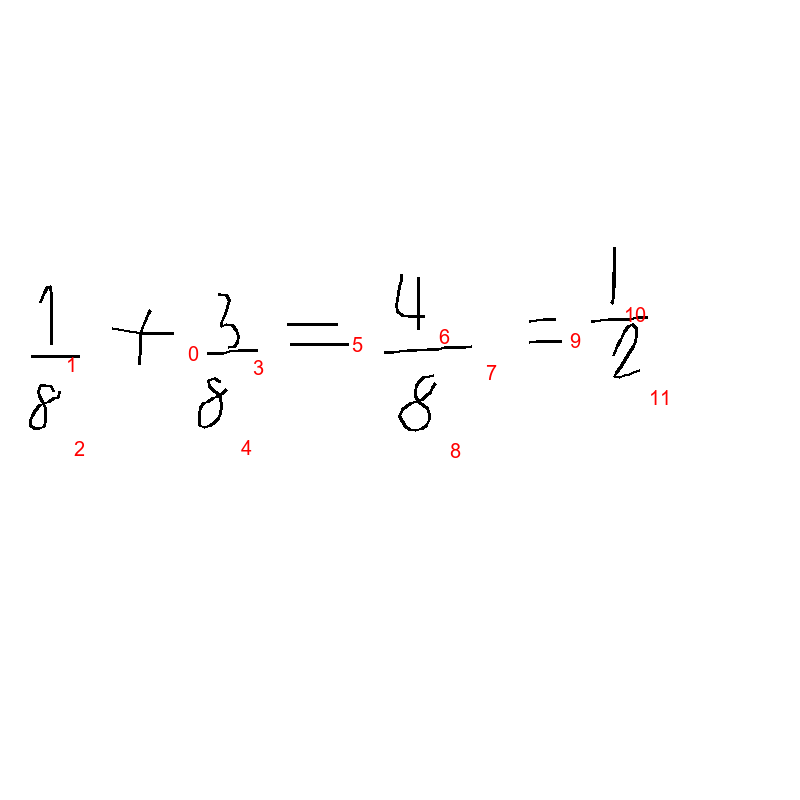 1/8 + 3/8 = 4/8 = 1/2
0 1 2 3 4 5 6 7 8 9 10 11